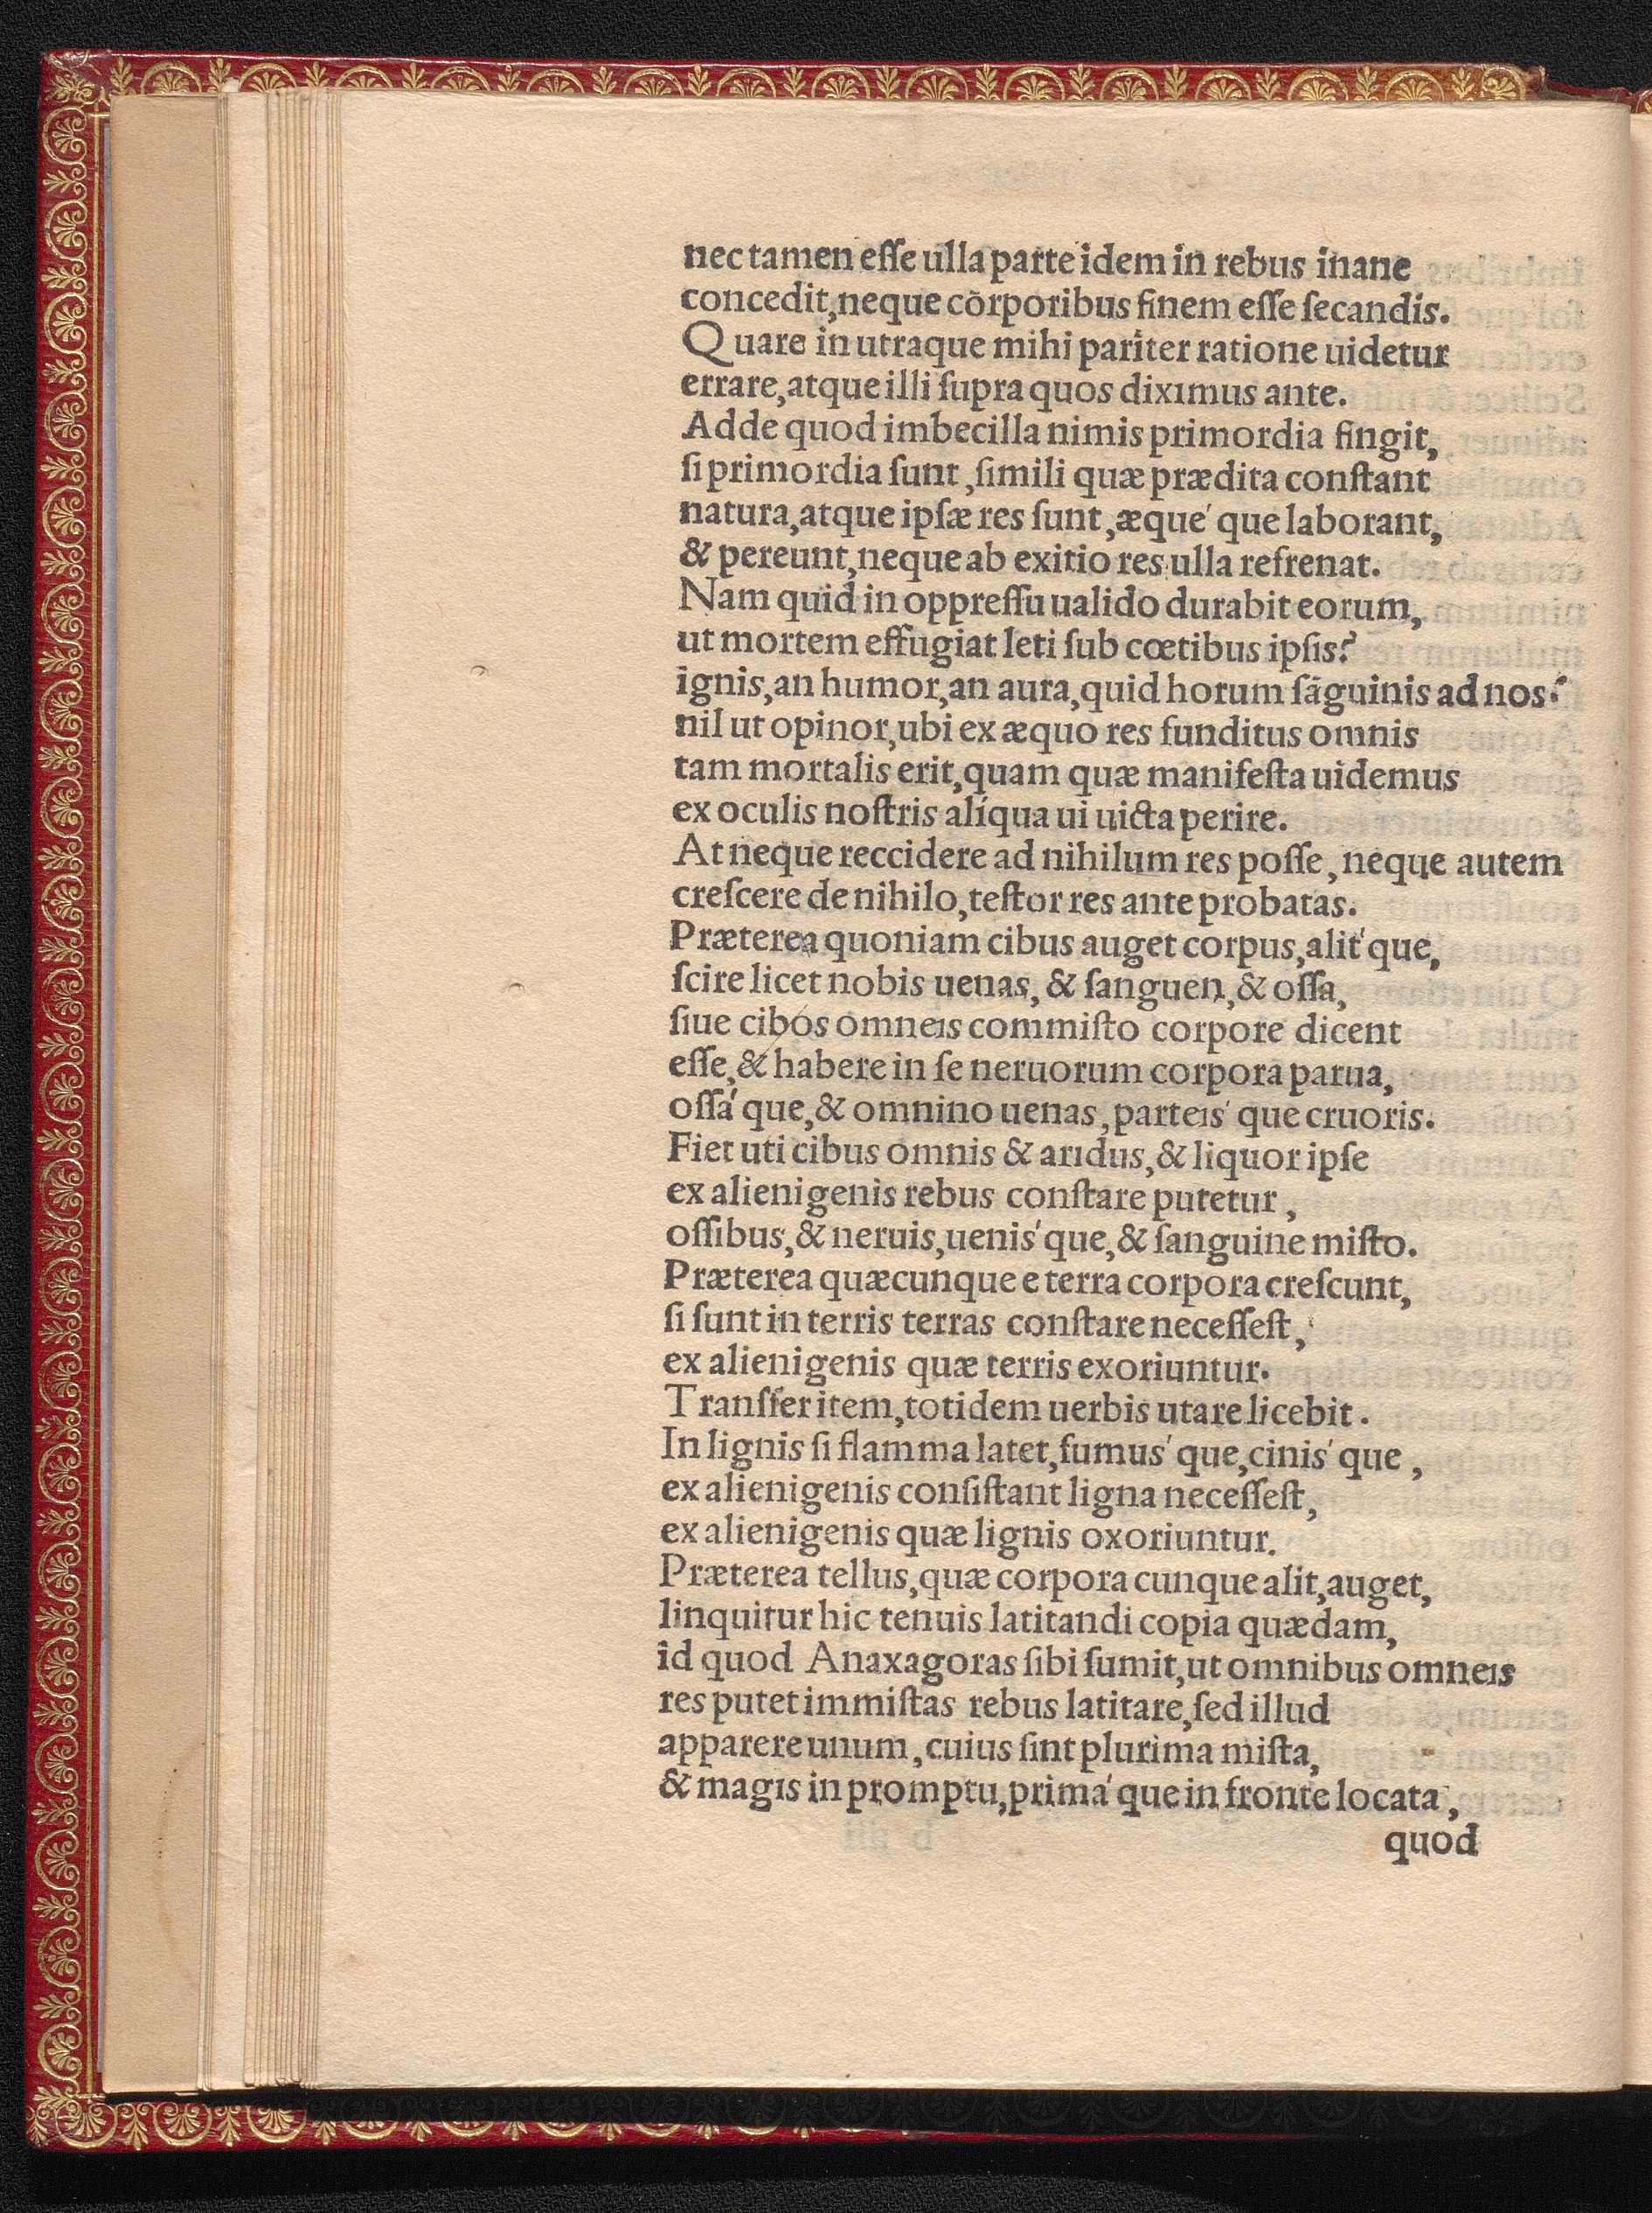 nec tamen eſſe ulla parte idem in rebus inane
concedit, neque corporibus finem eſſe ſecandis.
Quare in utraque mihi pariter ratione uidetur
errare, atque illi ſupra quos diximus ante.
Adde quod imbecilla nimis primordia fingit,
ſi primordia ſunt, ſimili quæ prædita conſtant
natura, atque ipſæ res ſunt, æque´que laborant,
& pereunt, neque ab exitio res ulla refrenat.
Nam quid in oppreſſu ualido durabit eorum,
ut mortem effugiat leti ſub cœtibus ipſis?
ignis, an humor, an aura, quid horum ſāguinis ad nos?
nil ut opinor, ubi ex æquo res funditus omnis
tam mortalis erit, quam quæ manifeſta uidemus
ex oculis noſtris alíqua ui uicta perire.
At neque reccidere ad nihilum res poſſe, neque autem
creſcere de nihilo, teſtor res ante probatas.
Præterea quoniam cibus auget corpus, alit´que,
ſcire licet nobis uenas, & ſanguen, & oſſa,
ſiue cibos omneis commiſto corpore dicent
eſſe, & habere in ſe neruorum corpora parua,
oſſa´que, & omnino uenas, parteis´que cruoris.
Fiet uti cibus omnis & aridus, & liquor ipſe
ex alienigenis rebus conſtare putetur,
oſſibus, & neruis, uenis´que, & ſanguine miſto.
Præterea quæcunque e terra corpora creſcunt,
ſi ſunt in terris terras conſtare neceſſeſt,
ex alienigenis quæ terris exoriuntur.
Transfer item, totidem uerbis utare licebit.
In lignis ſi flamma latet, fumus´que, cinis´que,
ex alienigenis conſiſtant ligna neceſſeſt,
ex alienigenis quæ lignis oxoriuntur.
Præterea tellus, quæ corpora cunque alit, auget,
linquitur hic tenuis latitandi copia quædam,
id quod Anaxagoras ſibi ſumit, ut omnibus omneis
res putet immiſtas rebus latitare, ſed illud
apparere unum, cuius ſint plurima miſta,
& magis in promptu, prima´que in fronte locata,
quod